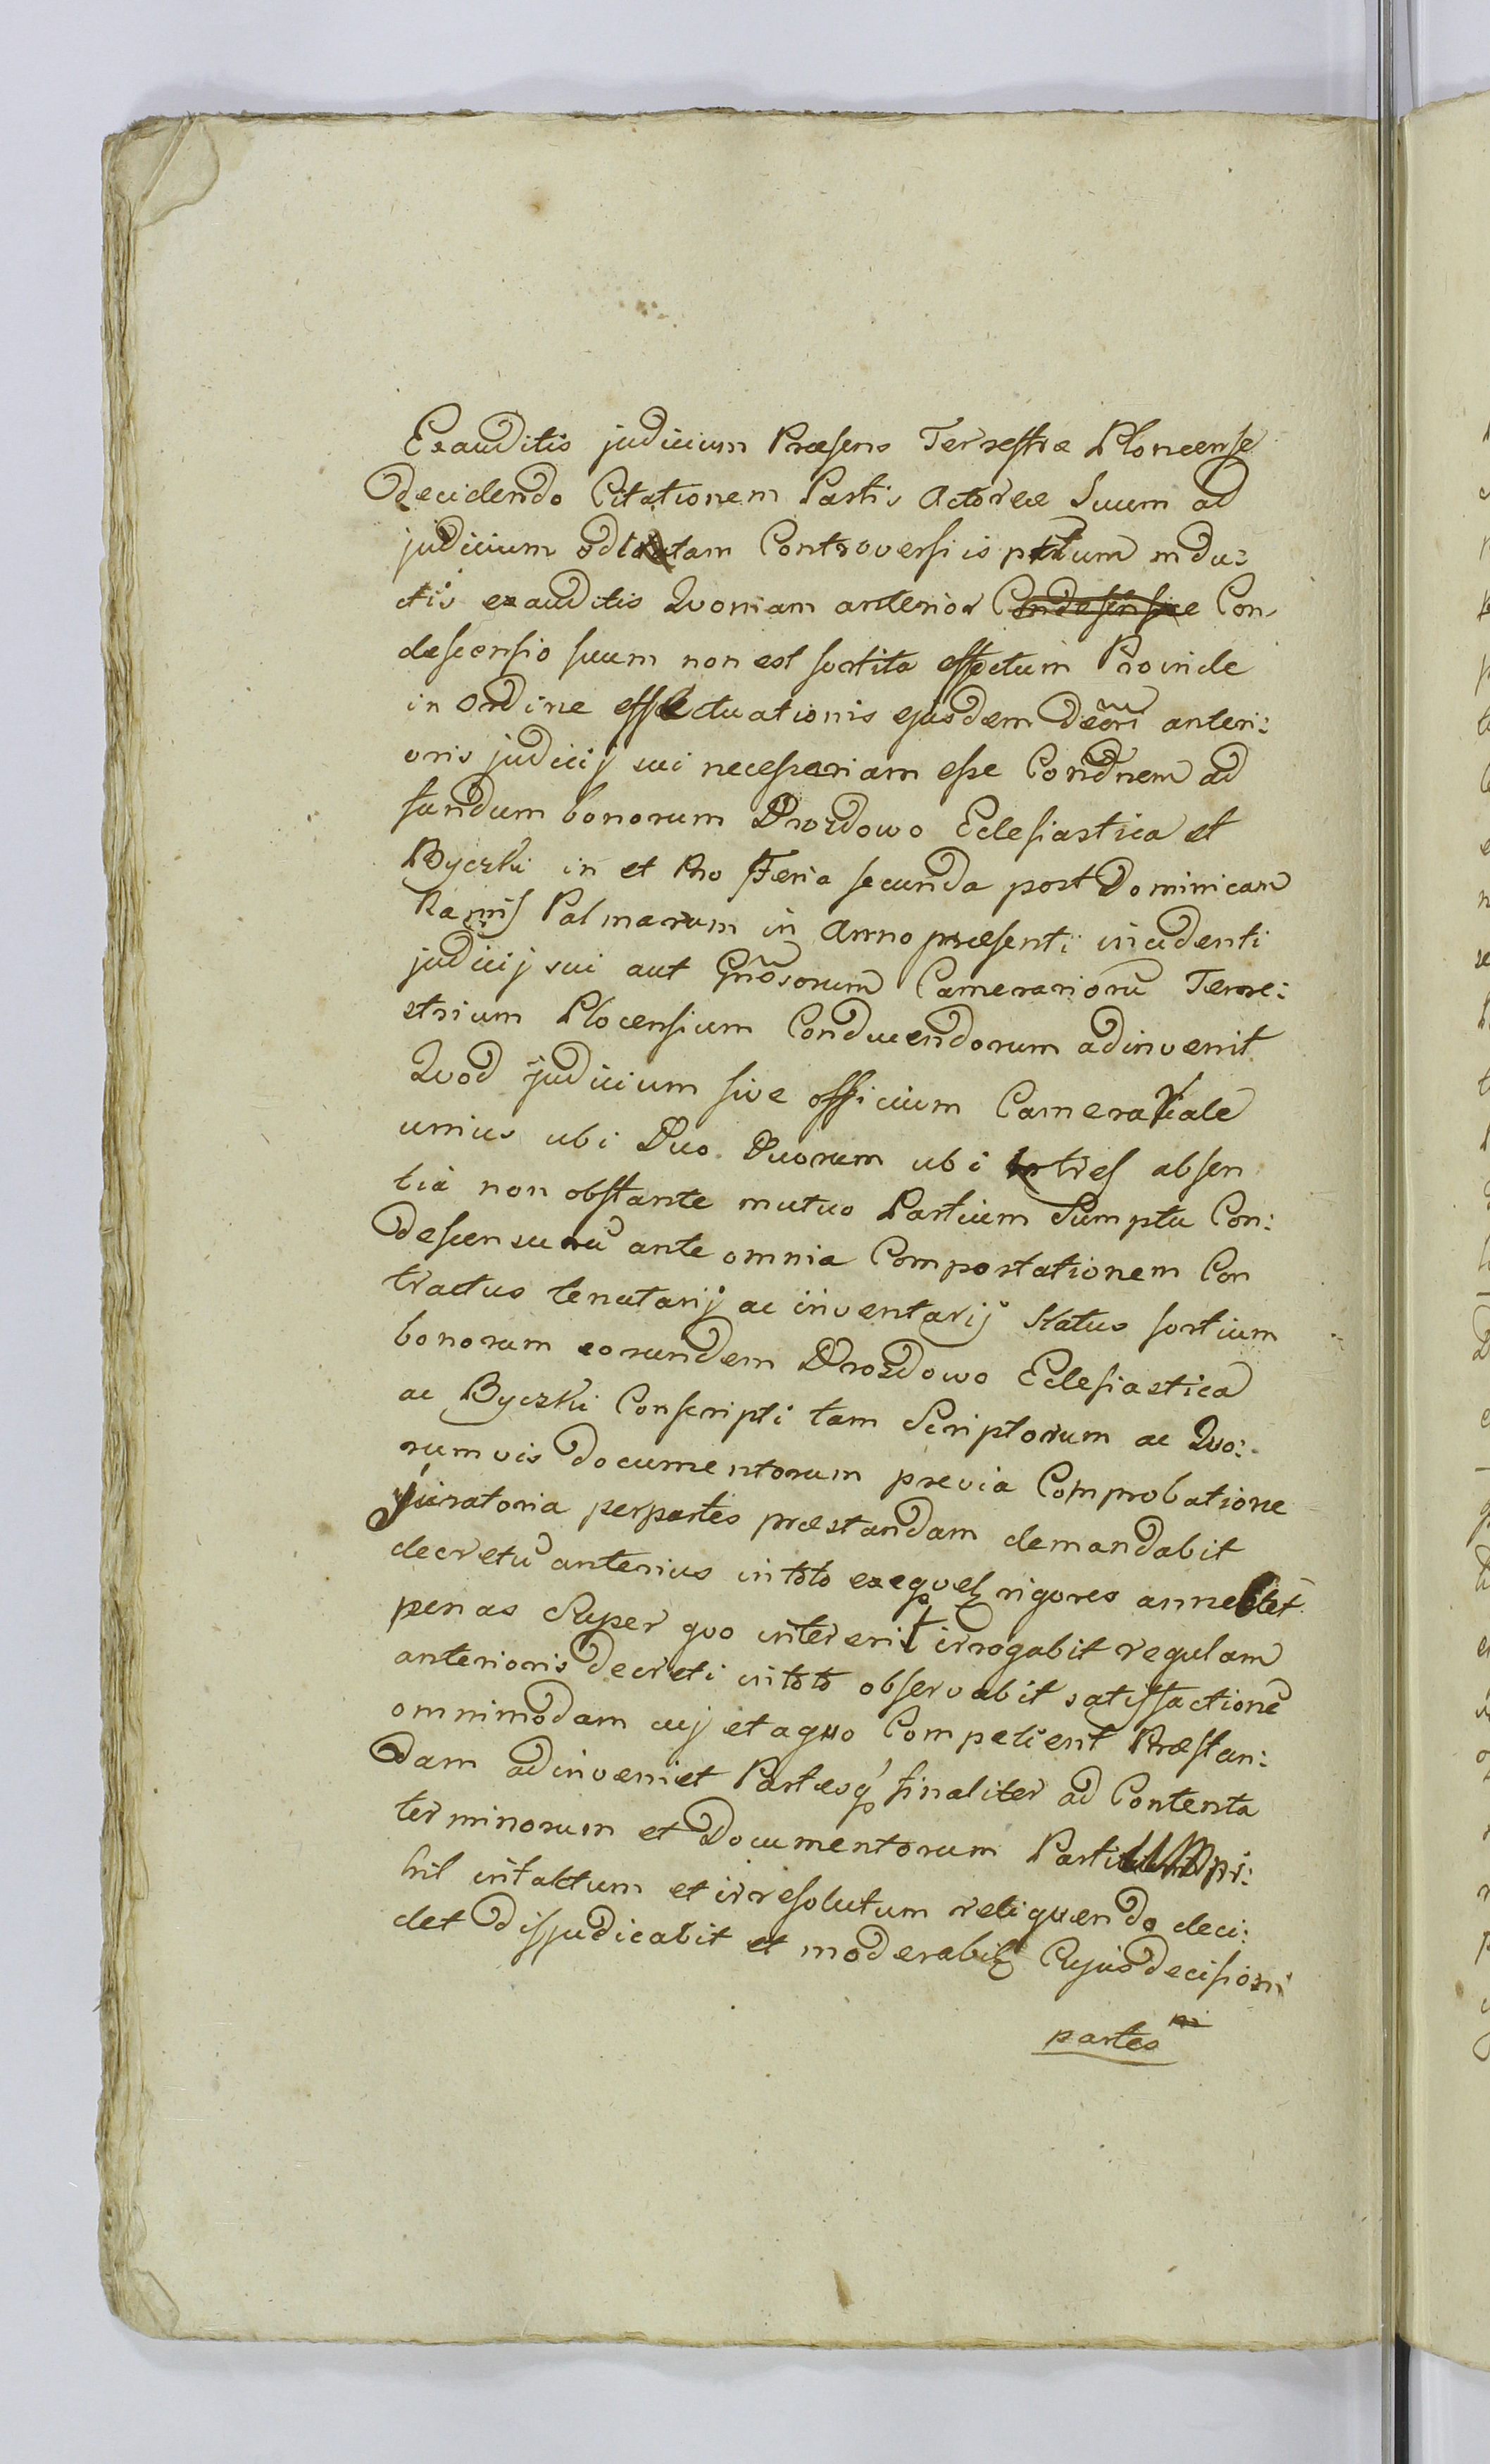 Exauditis judicium Præsens Terrestre Ploncense
decidendo Citationem Partis Actoreæ Suum ad
judicium Controversiis ptium indu:
ctis exauditis Qvoniam anterior Condescensione Con
descensio suum non est sortita effectum Proinde
in ordine effectuationis ejusdem Decri anteri:
oris judicij sui necessariam esse Condnem ad
fundum bonorum Drozdowo Eclesiastica et
Byczki in et pro Feria secunda post Dominicam
Ramis Palmarum in Anno præsenti incidenti
judicij sui aut Gnosorum Camerarioru Terre:
strium Plocensium Conducendorum adinvenit
Qvod judicium sive officium Camerariale
unius ubi Duo Duorum ubi tres absen
tia non obstante mutuo Partium Sumptu Con:
descensuru ante omnia Comportationem Con
tractus tenutarij ac inventarij Status sortium
bonorum eorundem Drozdowo Eclesiastica
ac Byczki Conscripti tam Scriptorum ac Qvo:
rumvis documentorum previa Comprobatione
juratoria per partes præstandam demandabit
decretu anterius in toto exeqvet rigores annectet
penas Super qvo intererit irrogabit regulam
anterioris decreti in toto observabit satisfactione
omnimodam cuj et a qvo Competient Præstan:
dam adinveniet Partesq finaliter ad Contenta
terminorum et Documentorum Partium ni:
hil intactum et irresolutum reliqvendo deci:
det disjudicabit et moderabit Cujus decisioni
partes